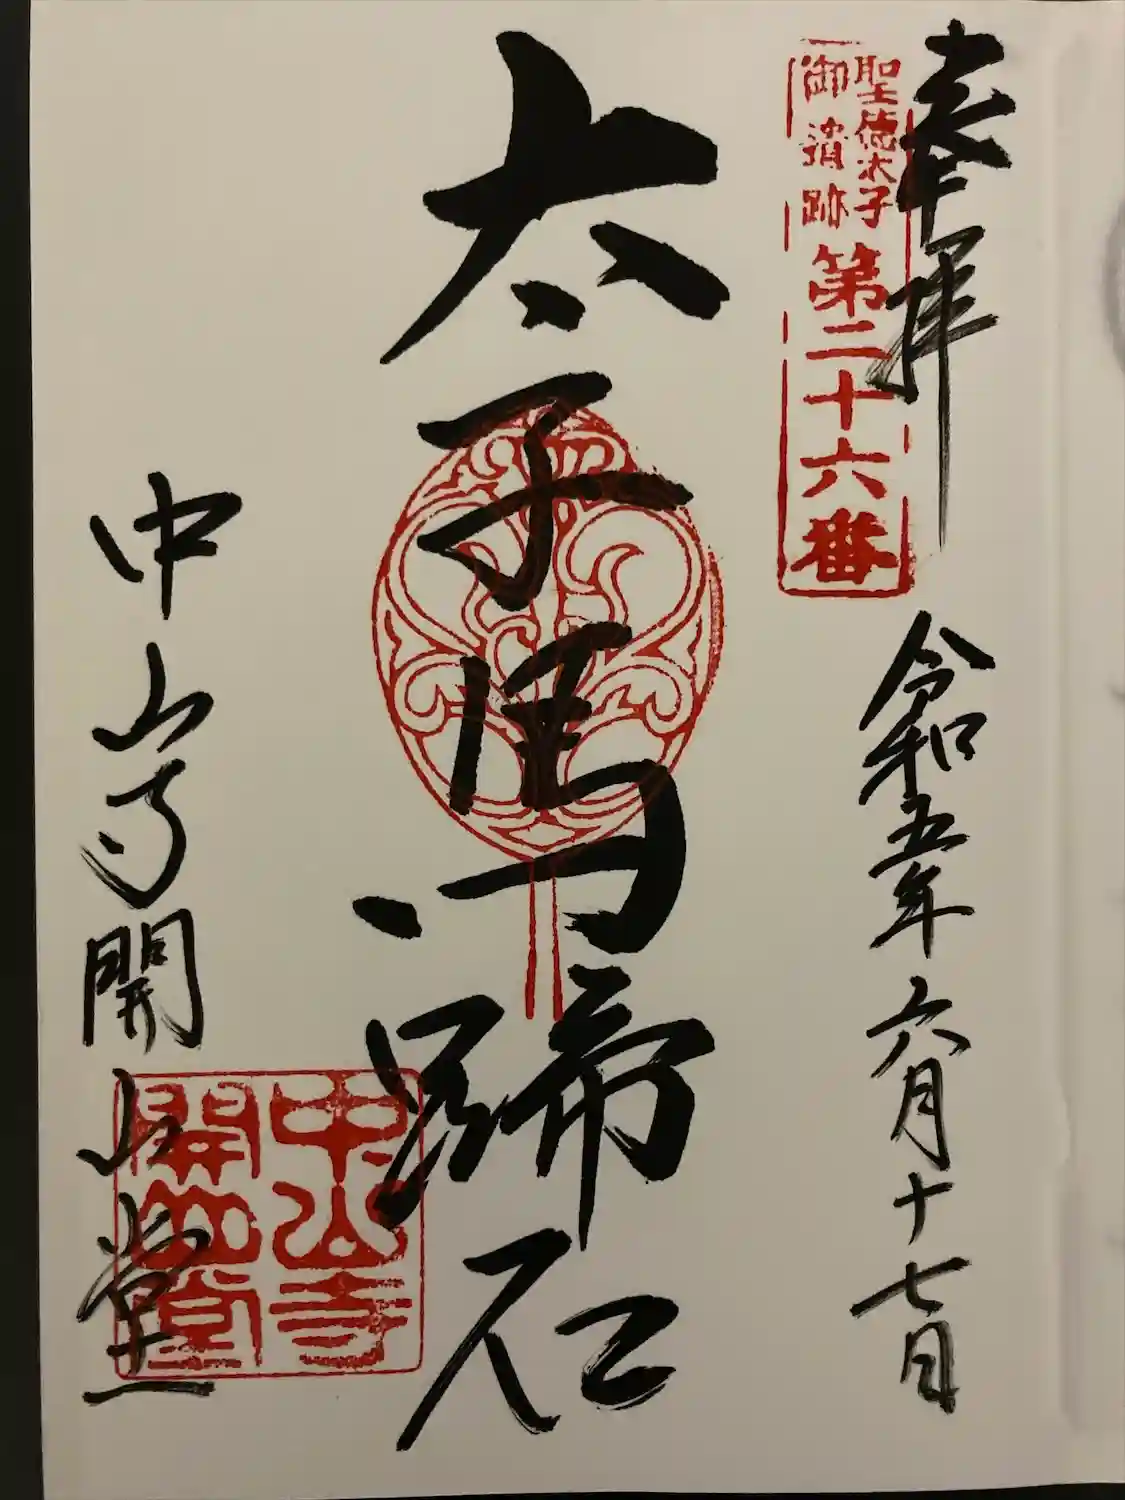 奉拝
聖徳太子
御遺跡
第二十六番
令和五年六月十七日
太子馬蹄石
中山寺開山堂
中山寺
開山堂